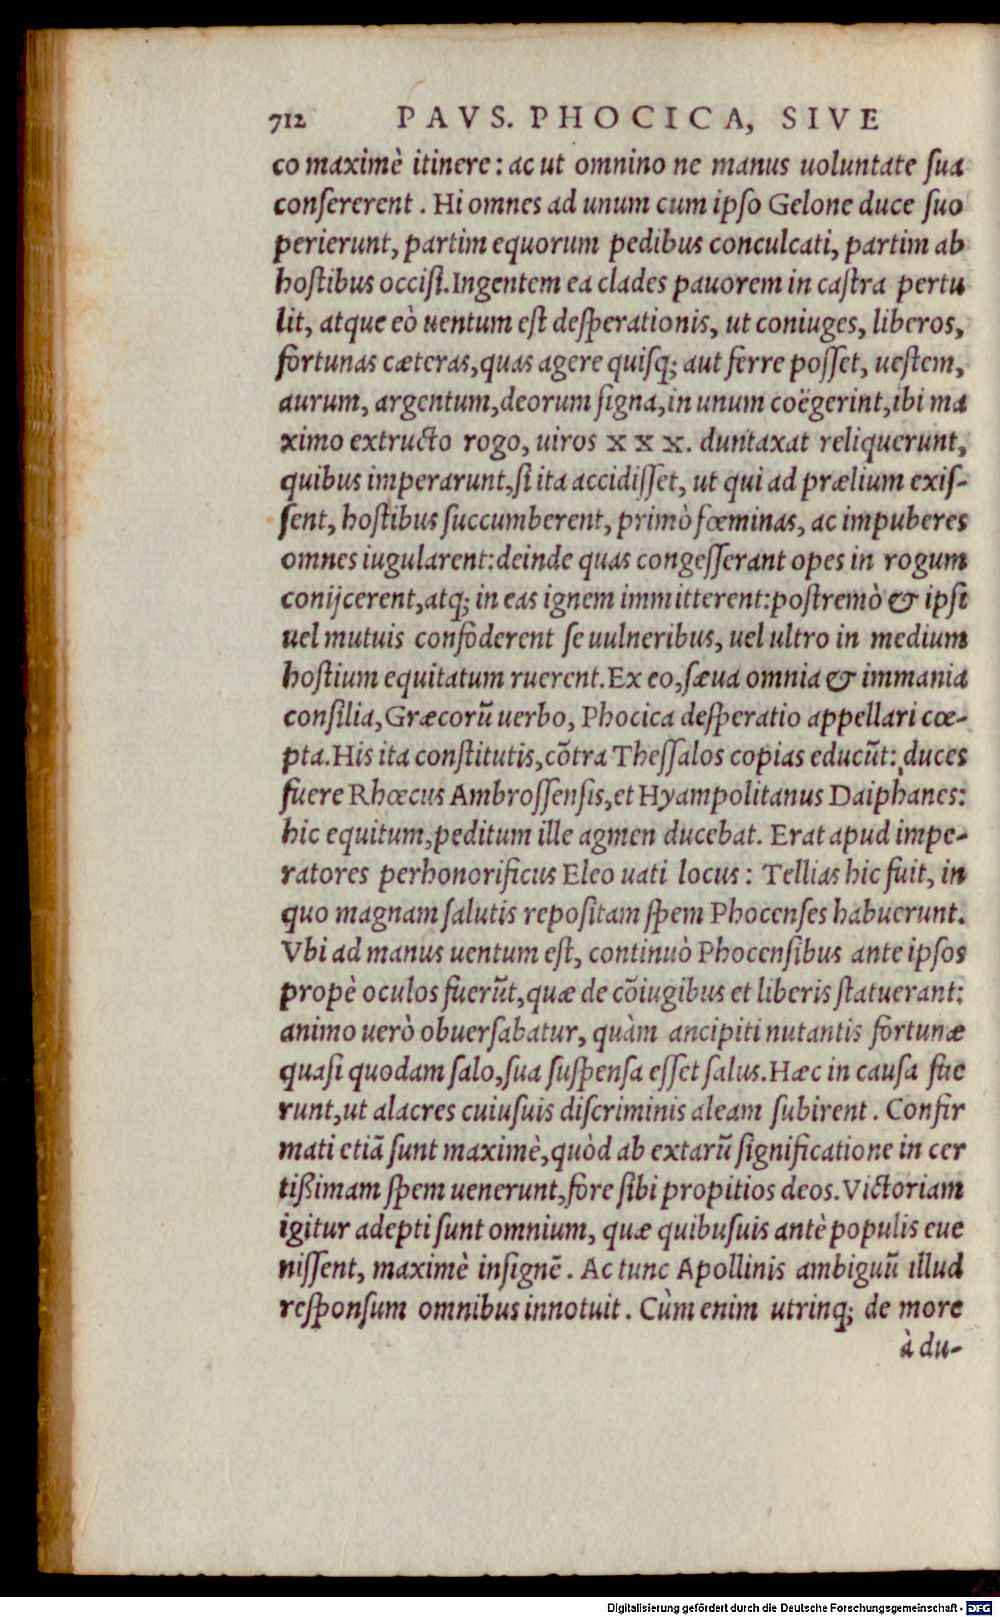 712 PAVS. PHOCICA, SIVE
co maximè itinere: ac ut omnino ne manus uoluntate ſua
conſererent. Hi omnes ad unum cum ipſo Gelone duce ſuo
perierunt, partim equorum pedibus conculcati, partim ab
hoſtibus occiſi. Ingentem ea clades pauorem in caſtra pertu
lit, atque eò uentum eſt deſperationis, ut coniuges, liberos,
fortunas cæteras, quas agere quisq; aut ferre poſſet, ueſtem,
aurum, argentum, deorum ſigna, in unum coëgerint, ibi ma
ximo extructo rogo, uiros XXX. duntaxat reliquerunt,
quibus imperarunt, ſi ita accidiſſet, ut qui ad prælium exiſ-
ſent, hoſtibus ſuccumberent, primò fœminas, ac impuberes
omnes iugularent: deinde quas congeſſerant opes in rogum
conijcerent, atq; in eas ignem immitterent: poſtremò & ipſi
uel mutuis confoderent ſe uulneribus, uel ultro in medium
hoſtium equitatum ruerent. Ex eo, ſæua omnia & immania
conſilia, Græcorū uerbo, Phocica deſperatio appellari cœ-
pta. His ita conſtitutis, cōtra Theſſalos copias educūt: duces
fuere Rhœcus Ambroſſenſis, et Hyampolitanus Daiphanes:
hic equitum, peditum ille agmen ducebat. Erat apud impe-
ratores perhonorificus Eleo uati locus: Tellias hic fuit, in
quo magnam ſalutis repoſitam ſpem Phocenſes habuerunt.
Vbi ad manus uentum eſt, continuò Phocenſibus ante ipſos
propè oculos fuerūt, quæ de cōiugibus et liberis ſtatuerant:
animo uerò obuerſabatur, quàm ancipiti nutantis fortunæ
quaſi quodam ſalo, ſua ſuſpenſa eſſet ſalus. Hæc in cauſa fue
runt, ut alacres cuiuſuis diſcriminis aleam ſubirent. Confir
mati etiā ſunt maximè, quòd ab extarū ſignificatione in cer
tißimam ſpem uenerunt, fore ſibi propitios deos. Victoriam
igitur adepti ſunt omnium, quæ quibuſuis antè populis eue
niſſent, maximè inſignē. Ac tunc Apollinis ambiguū illud
reſponſum omnibus innotuit. Cùm enim utrinq; de more
à du-
Digitalisierung gefördert durch die Deutsche Forschungsgemeinschaft - DFG